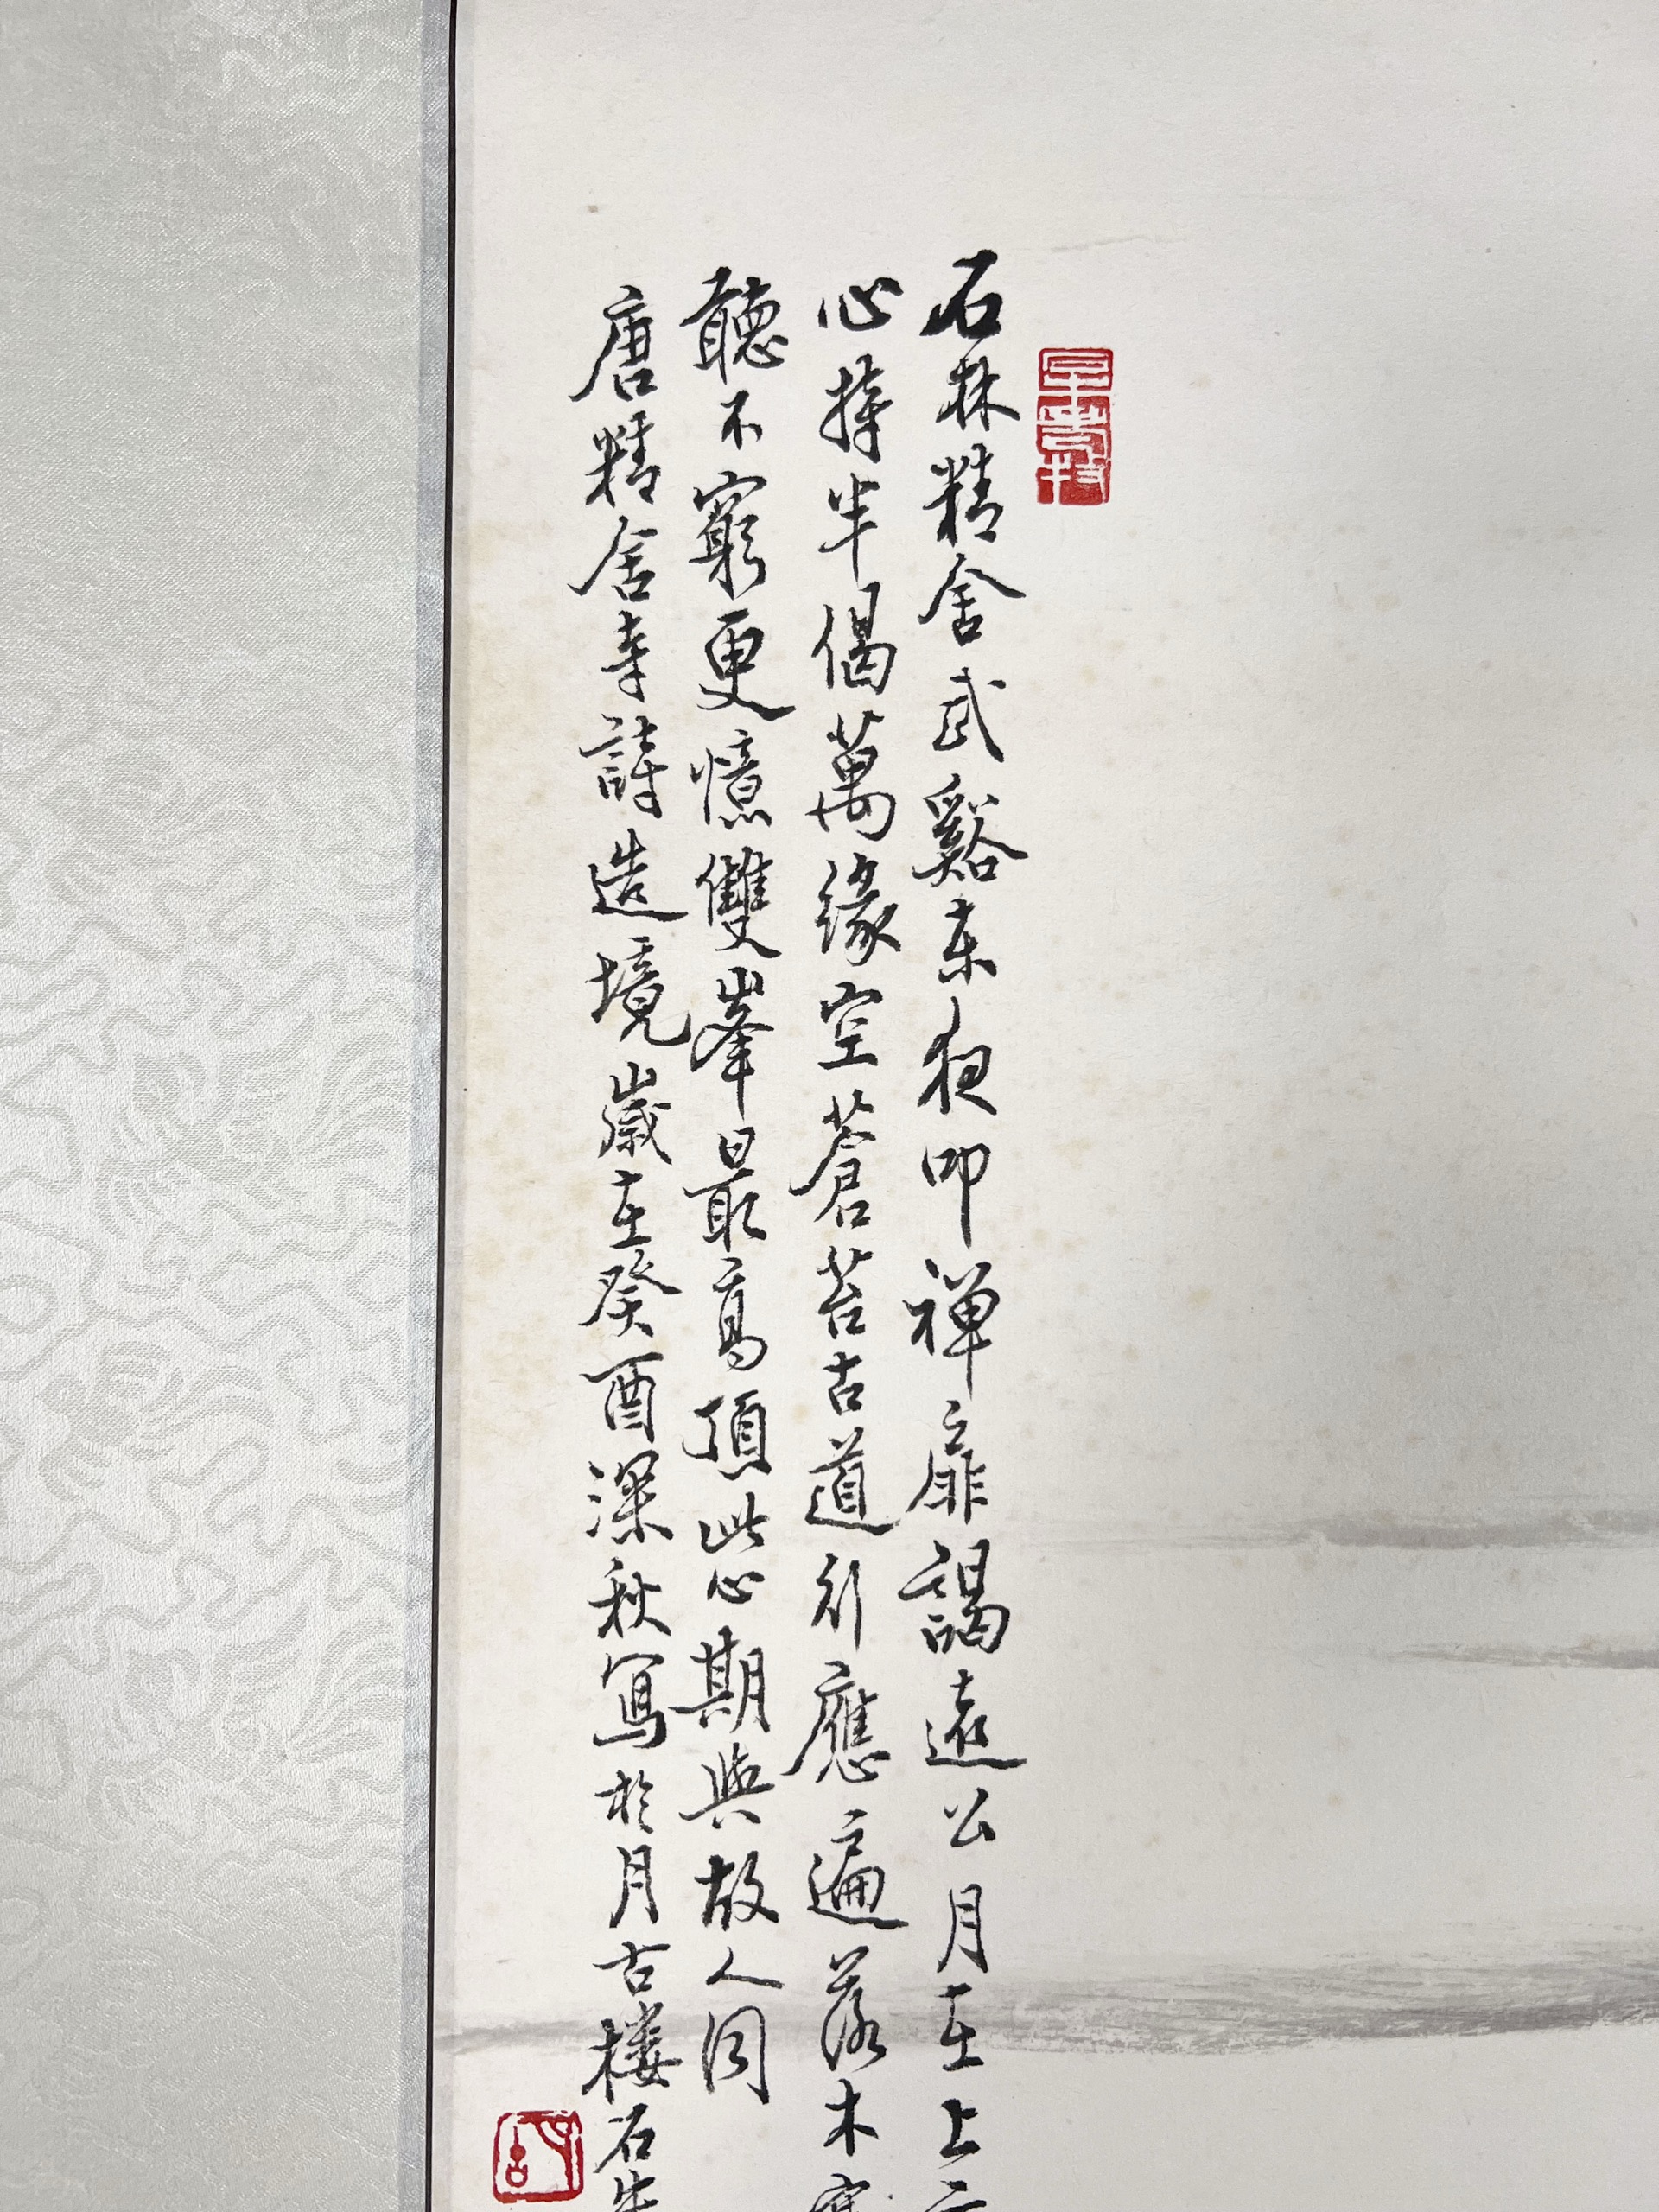 石林精舍武谿東夜叩禅扉謁遠公月在上
心持半偈萬緣空蒼苔古道行應遍落木
聽不窮更憶雙峯最高頂此心期與故人同
唐精舍寺詩造境歲在癸酉深秋寫於月古樓石